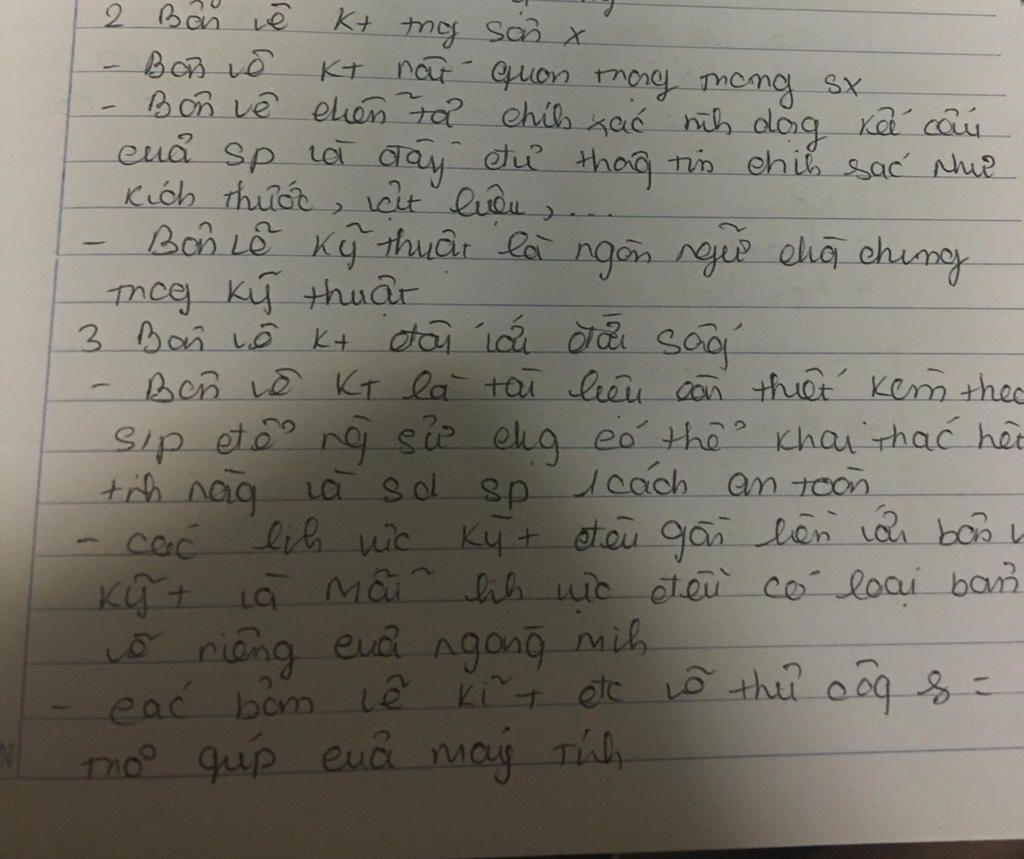 2 Bản vẽ Kt trng sản x
- Bản vẽ KT rất quan trọng trong sx
- Bản vẽ chuẩn tả chíh xác hìh dạng kết cấu
của sp và đầy đủ thôg tin chíh sác như
kích thước, vật liệu,...
- Bản vẽ kỹ thuật là ngôn ngữ chug chung
trong kỹ thuật
3 Bản vẽ Kt đối với đời sốg
- Bản vẽ KT là tài liệu cần thiết kèm theo
s/p để ng sử dụg có thể khai thác hết
tíh năg và sd sp 1 cách an toàn
- các lĩh vực kỹ t đều gắn liền với bản v
kỹ t và mỗi lĩh vực đều có loại bản
vẽ riêng của ngàng mìh
- các bảm vẽ kĩ t đc vẽ thủ côg =
trợ giúp của máy tính